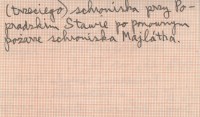 (trzeciego) schroniska przy Po-
pradzkim Stawie po ponownym
pożarze schroniska Majlátha.